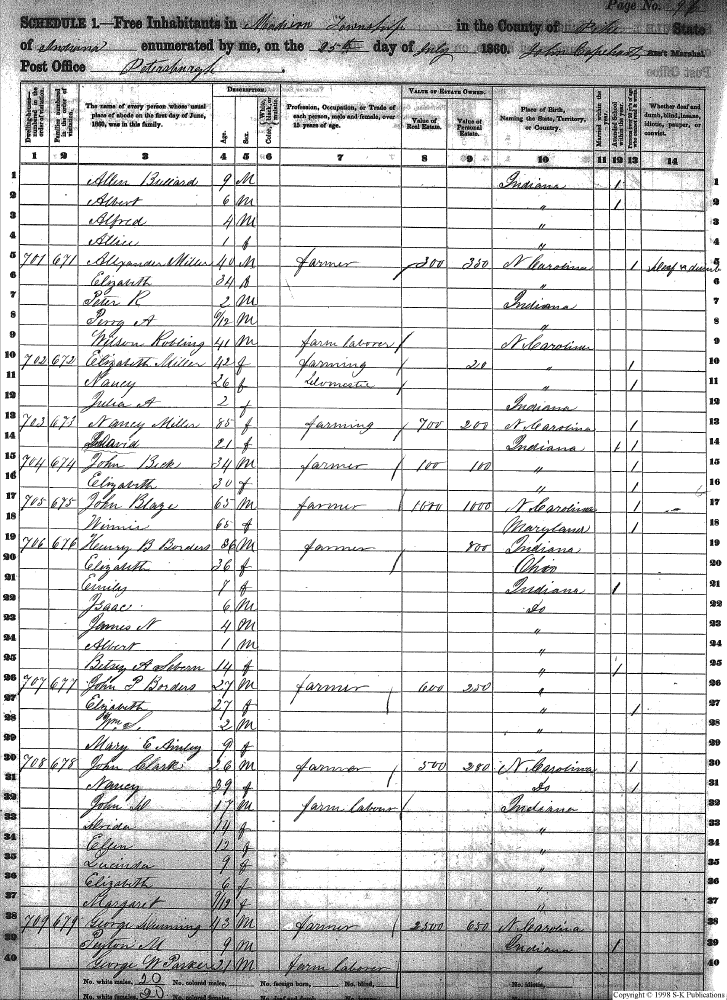 Page No. 96
SCHEDULE 1.—Free Inhabitants in Madison Township in the County of Pike State
of Indiana enumerated by me, on the 25th day of July 1860. John Capehart Ass't Marshal.
Post Office Petersburgh
Dwelling-houses numbered in the order of visitation. Families numbered in the order of visitation. The name of every person whose usual place of abode on the first day of June, 1860, was in this family. DESCRIPTION. Age. Sex. Color, White, black, or mulatto. Profession, Occupation, or Trade of each person, male and female, over 15 years of age. VALUE OF ESTATE OWNED. Value of Real Estate. Value of Personal Estate. Place of Birth, Naming the State, Territory, or Country. Married within the year. Attended School within the year. Whether deaf and dumb, blind, insane, idiotic, pauper, or convict.
1 2 3 4 5 6 7 8 9 10 11 12 13 14
1 Allen 9 M Indiana / 1
2 Albert 6 M " / 2
3 Alfred 4 M " 3
4 Alice 1 f " 4
5 701 671 Alexander Miller 40 M farmer 300 350 N Carolina / Deaf & dumb 5
6 Elizabeth 34 " 6
7 Peter R 2 M Indiana 7
8 Perry A 9/12 M " 8
9 Wilson Robling 41 M farm laborer / N Carolina 9
10 702 672 Elizabeth Miller 42 f farming 20 " / 10
11 Nancy 26 f Domestic / " / 11
12 Julia A 2 f Indiana 12
13 703 673 Nancy Miller 85 f farming 700 200 N Carolina / 13
14 David 21 f Indiana 1 / 14
15 704 674 John Beck 34 M farmer 100 100 " / 15
16 Elizabeth 30 f " / 16
17 705 675 John Blaze 65 M farmer 1000 1000 N Carolina / 17
18 Winnie 65 f Maryland / 18
19 706 676 Henry B Borders 36 M farmer 800 Indiana 19
20 Elizabeth 36 f Ohio 20
21 Emily 7 f Indiana / 21
22 Isaac 6 M Do 22
23 James N 4 M " 23
24 Albert 1 M " 24
25 Betsy A 14 f " / 25
26 707 677 John P Borders 27 M farmer 600 250 " 26
27 Elizabeth 27 f " / 27
28 Wm S. 2 M " 28
29 Mary E 9 f " 29
30 708 678 John Clark 26 M farmer 500 280 N Carolina / 30
31 Nancy 39 f Do / 31
32 John M 17 M farm labour / Indiana 32
33 14 f " 33
34 12 f " 34
35 Lucinda 9 f " 35
36 Elizabeth 6 f " 36
37 Margaret 9/12 f " 37
38 709 679 George 43 M farmer 2500 650 N Carolina 38
39 Peyton M 9 M Indiana / 39
40 George W Parker 21 M farm laborer " 40
No. white males, 20 No. colored males, No. foreign born, No. blind, No. idiotic,
No. white females, 20 No. colored females,
Copyright © 1998 S-K Publications